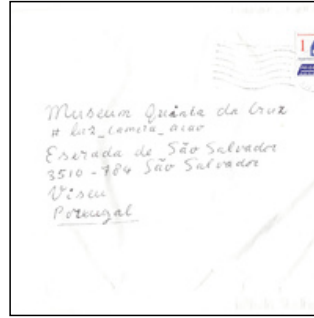 Museum Quinta da Cruz
# luz_camera_acao
Estrada de São Salvador
3510-784 São Salvador
Viseu
Portugal
1